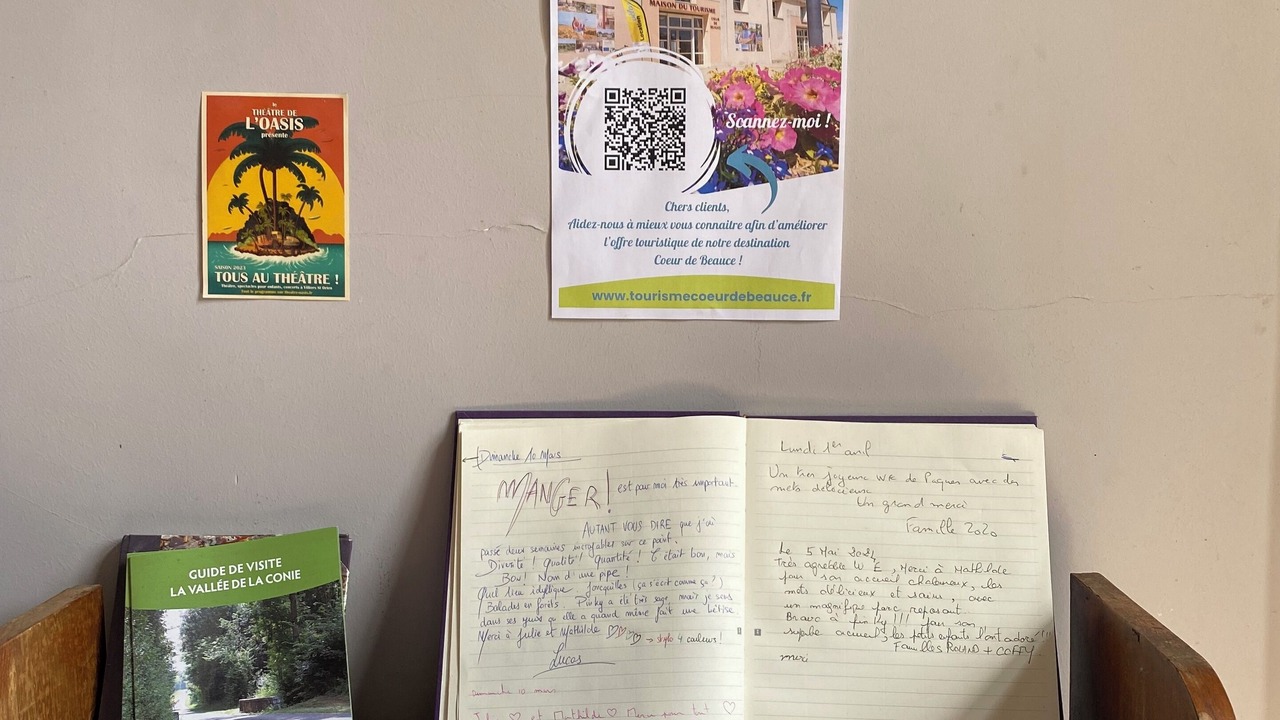 MAISON DU TOURISME
COEUR DE BEAUCE
le
THÉÂTRE DE
L'OASIS
présente
SAISON 2023
TOUS AU THÉÂTRE !
Théâtre, spectacles pour enfants, concerts à Villiers St Orien
Scannez-moi !
Chers clients,
Aidez-nous à mieux vous connaitre afin d'améliorer
l'offre touristique de notre destination
Coeur de Beauce !
www.tourismecoeurdebeauce.fr
GUIDE DE VISITE
LA VALLÉE DE LA CONIE
Dimanche 10 Mars
MANGER! est pour moi très important.
AUTANT VOUS DIRE que j'ai
passé deux semaines incroyables sur ce point.
Diversité ! Qualité ! Quantité ! C'était bon, mais
Bon ! Nom d'une pipe !
Quel lieu idyllique. Jonquilles (ça s'écrit comme ça ?)
Balades en forêts. Pinky a été très sage, mais je sens
dans ses yeux qu'elle a quand même fait une bêtise
Merci à Julie et Mathilde ♡♡♡ → stylo 4 couleurs !
Lucas
Dimanche 10 mars
♡ et Mathilde ♡ Merci pour tout ♡
Lundi 1er avril
Un très joyeux WE de Pâques avec des
mets délicieux
Un grand merci
Famille 2020
Le 5 Mai 2024
Très agréable W E, Merci à Mathilde
pour son accueil chaleureux, les
mets délicieux et sains, avec
un magnifique parc reposant
Bravo à Pinky !!! pour son
superbe accueil, les petits enfants l'ont adoré !!!
Familles ROLAND + COFFY
merci